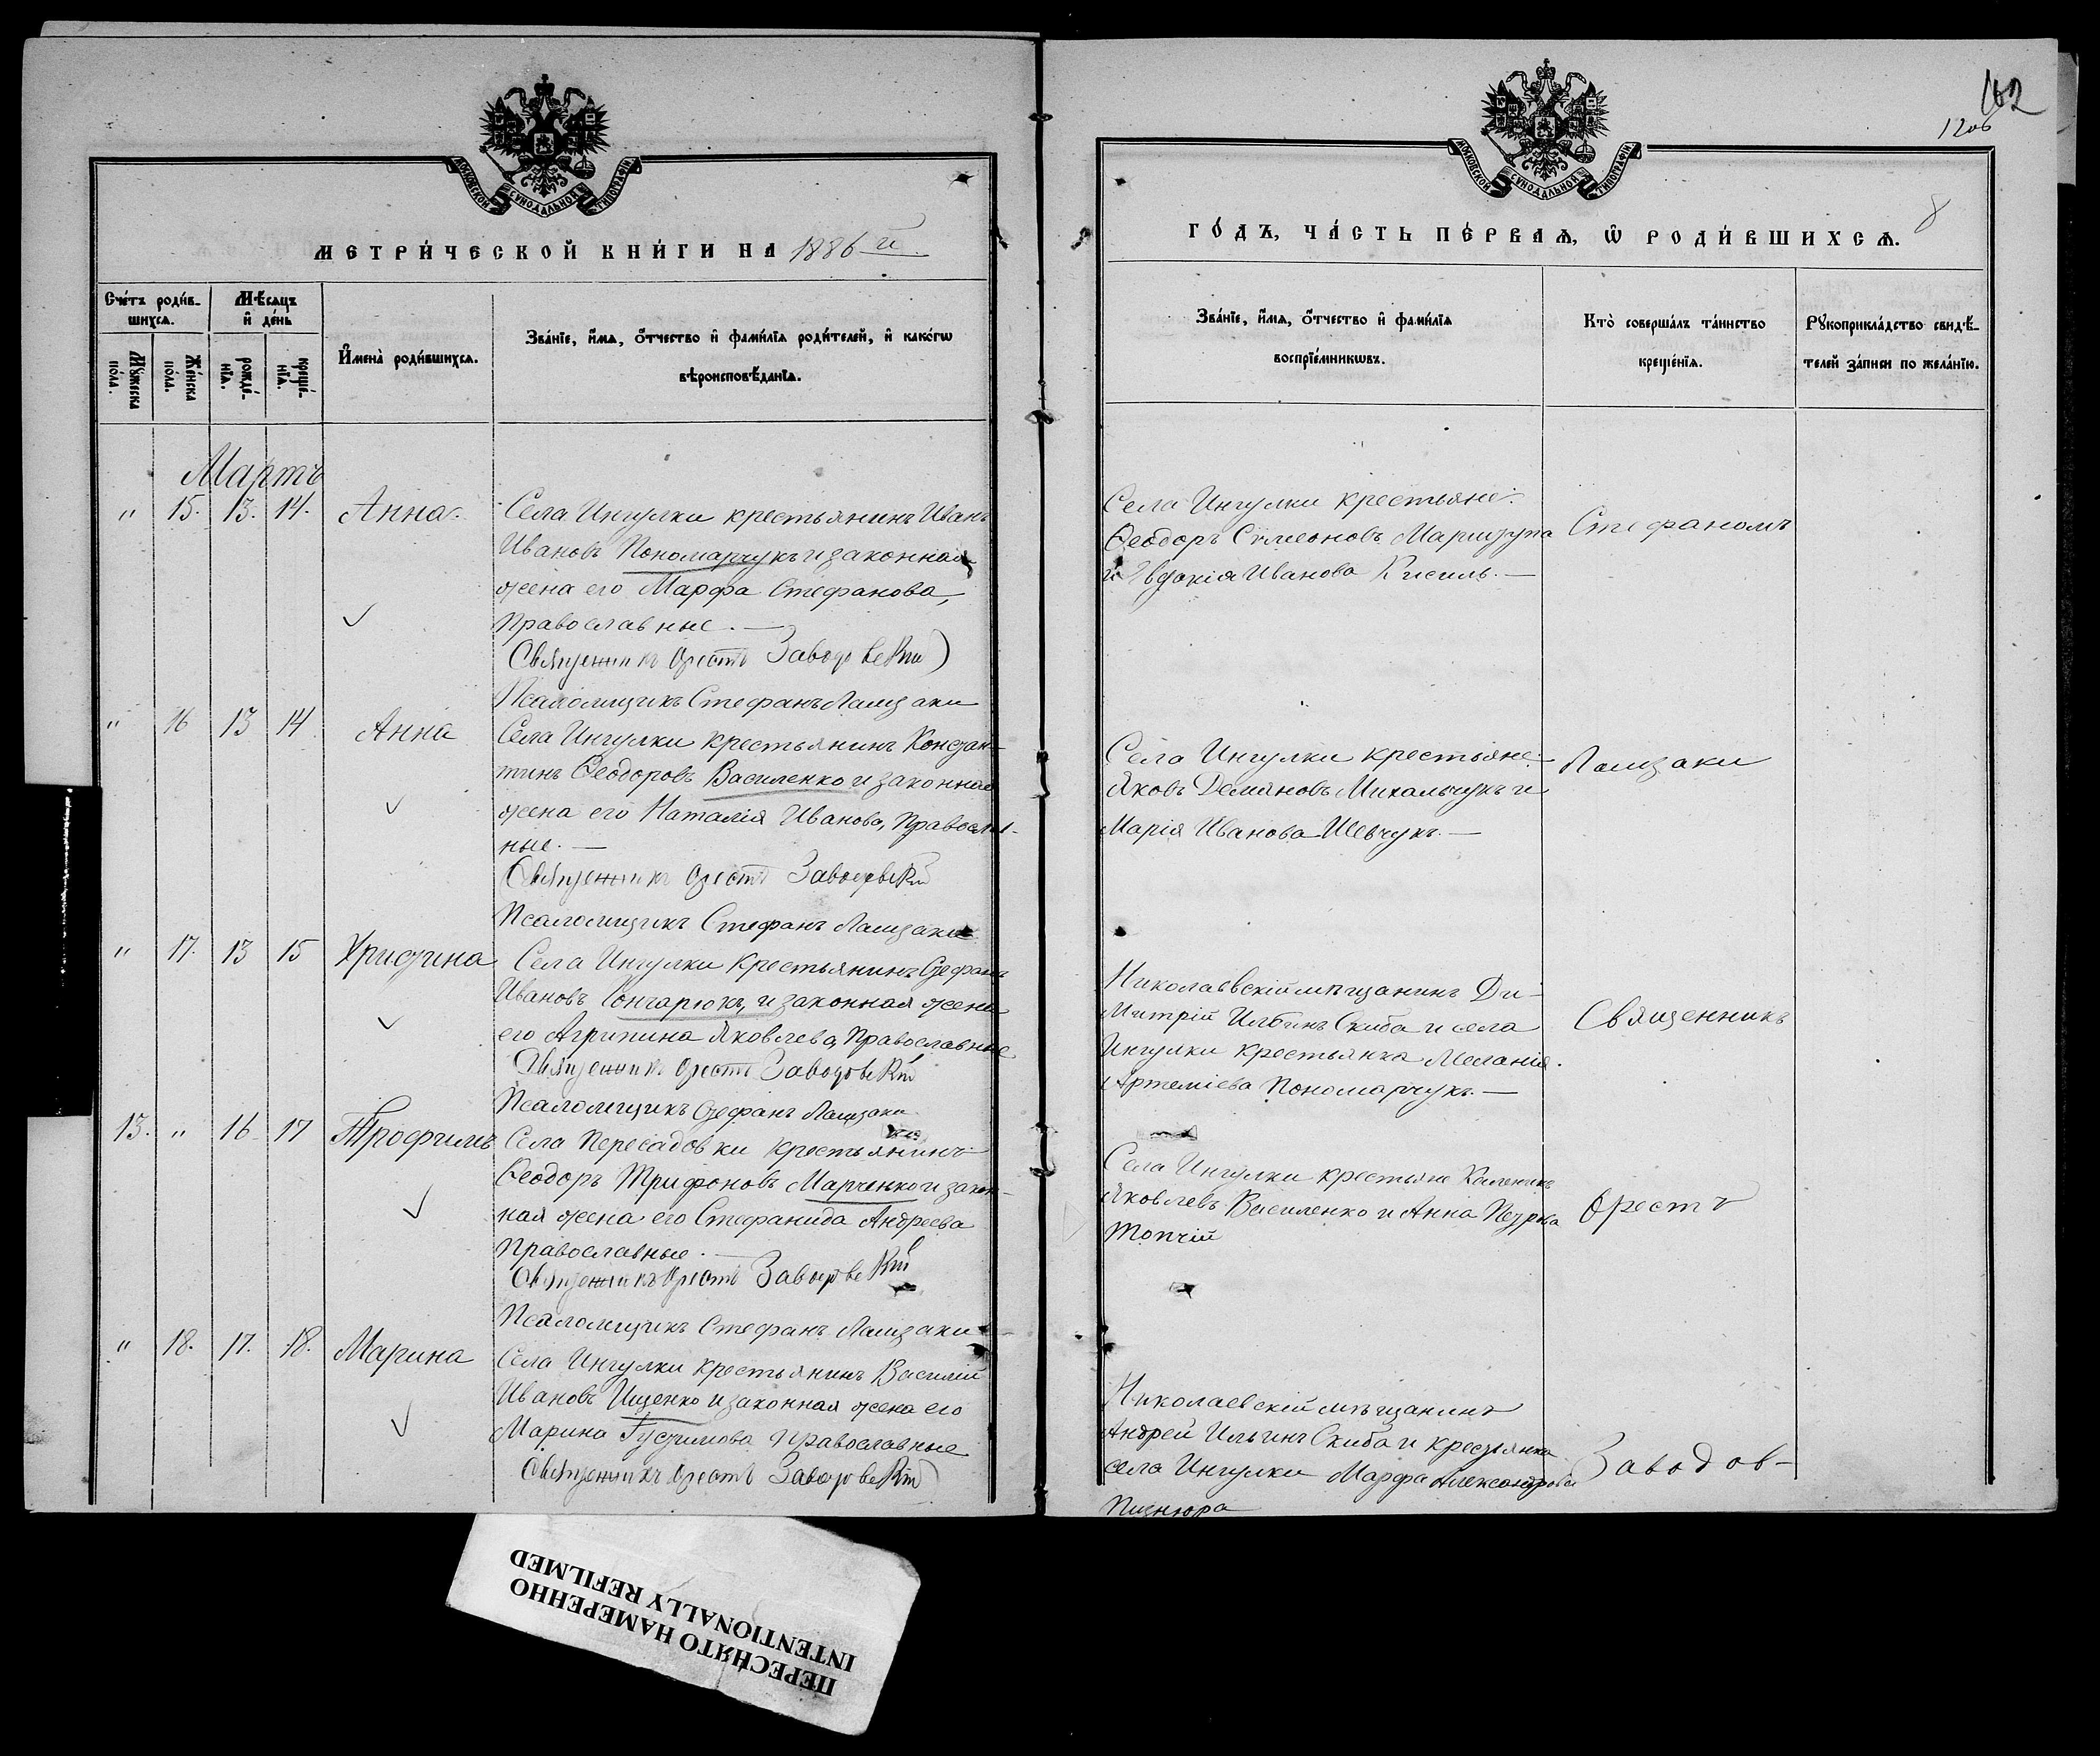 МОСКОВСКОЙ СѴНОДАЛЬНОЙ ТИПОГРАФІИ
МЕТРИ́ЧЕСКОЙ КНИ́ГИ НА 1886 й
Сче́тъ роди́в-
шихсѧ.
Мѣ́сѧцъ
и҆ де́нь
И҆мена̀ роди́вшихсѧ.
Зва́нїе, и҆́мѧ, ѻ҆́тчество и҆ фами́лїѧ роди́телей, и҆ како́гѡ
вѣроисповѣ́данїѧ.
Мꙋ́жеска
по́ла.
Же́нска
по́ла.
рожде́-
нїѧ.
креще́-
нїѧ.
Мартъ
" 15. 13. 14. Анна.
Села Ингулки крестьянинъ Иванъ
Ивановъ Пономарчукъ и законная
жена его Марфа Стефанова,
Православные. —
Священникъ Орестъ Заводовскій
Псаломщикъ Стефанъ
" 16 13 14 Анна
Села Ингулки крестьянинъ Констан-
тинъ Ѳеодоровъ Василенко и законная
жена его Наталія Иванова, Православ-
ные. —
Священникъ Орестъ Заводовскій
Псаломщикъ Стефанъ
" 17. 13 15 Христина
Села Ингулки крестьянинъ Стефанъ
Ивановъ Гончарюкъ, и законная жена
его Агрипина Яковлева, Православные
Священникъ Орестъ Заводовскій
Псаломщикъ Стефанъ
13. " 16 17 Трофимъ
Села Пересадовки крестьянинъ
Ѳеодоръ Трифоновъ Марченко и закон-
ная жена его Стефанида Андреева
Православные. —
Священникъ Орестъ Заводовскій
Псаломщикъ Стефанъ
" 18. 17. 18. Марина
Села Ингулки крестьянинъ Василій
Ивановъ Ищенко и законная жена его
Марина Густимова Православные
Священникъ Орестъ Заводовскій
162
12об
8
МОСКОВСКОЙ СѴНОДАЛЬНОЙ ТИПОГРАФІИ
ГО́ДЪ, ЧА́СТЬ ПЕ́РВАѦ, Ѡ҆ РОДИ́ВШИХСѦ.
Зва́нїе, и҆́мѧ, ѻ҆́тчество и҆ фами́лїѧ
воспрїе́мникѡвъ.
Кто̀ соверша́лъ та́инство
креще́нїѧ.
Рꙋкоприкла́дство свидѣ́-
телей за́писи по жела́нїю.
Села Ингулки крестьяне:
Ѳеодоръ Сѵмеоновъ
и Евдокія Иванова Кисиль. —
Стефаномъ
Села Ингулки крестьяне:
Яковъ Деміяновъ Михальчукъ и
Марія Иванова Шевчукъ. —
Николаевскій мѣщанинъ Ди-
митрій Ильинъ Скиба и села
Ингулки крестьянка Меланія
Артеміева Пономарчукъ. —
Священникъ
Села Ингулки крестьяне Каленикъ
Яковлевъ Василенко и Анна Петрова
Топчій
Орестъ
Николаевскій мѣщанинъ
Андрей Ильинъ Скиба и крестьянка
села Ингулки Марфа Александрова
Пизнюра
Заводов-
ПЕРЕСНЯТО НАМЕРЕННО
INTENTIONALLY REFILMED